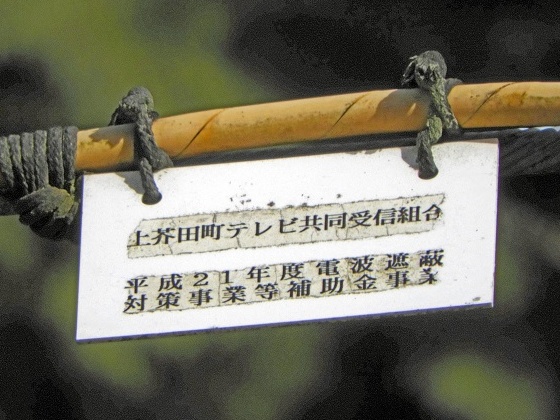 上芥田町テレビ共同受信組合
平成21年度電波遮蔽
対策事業等補助金事業